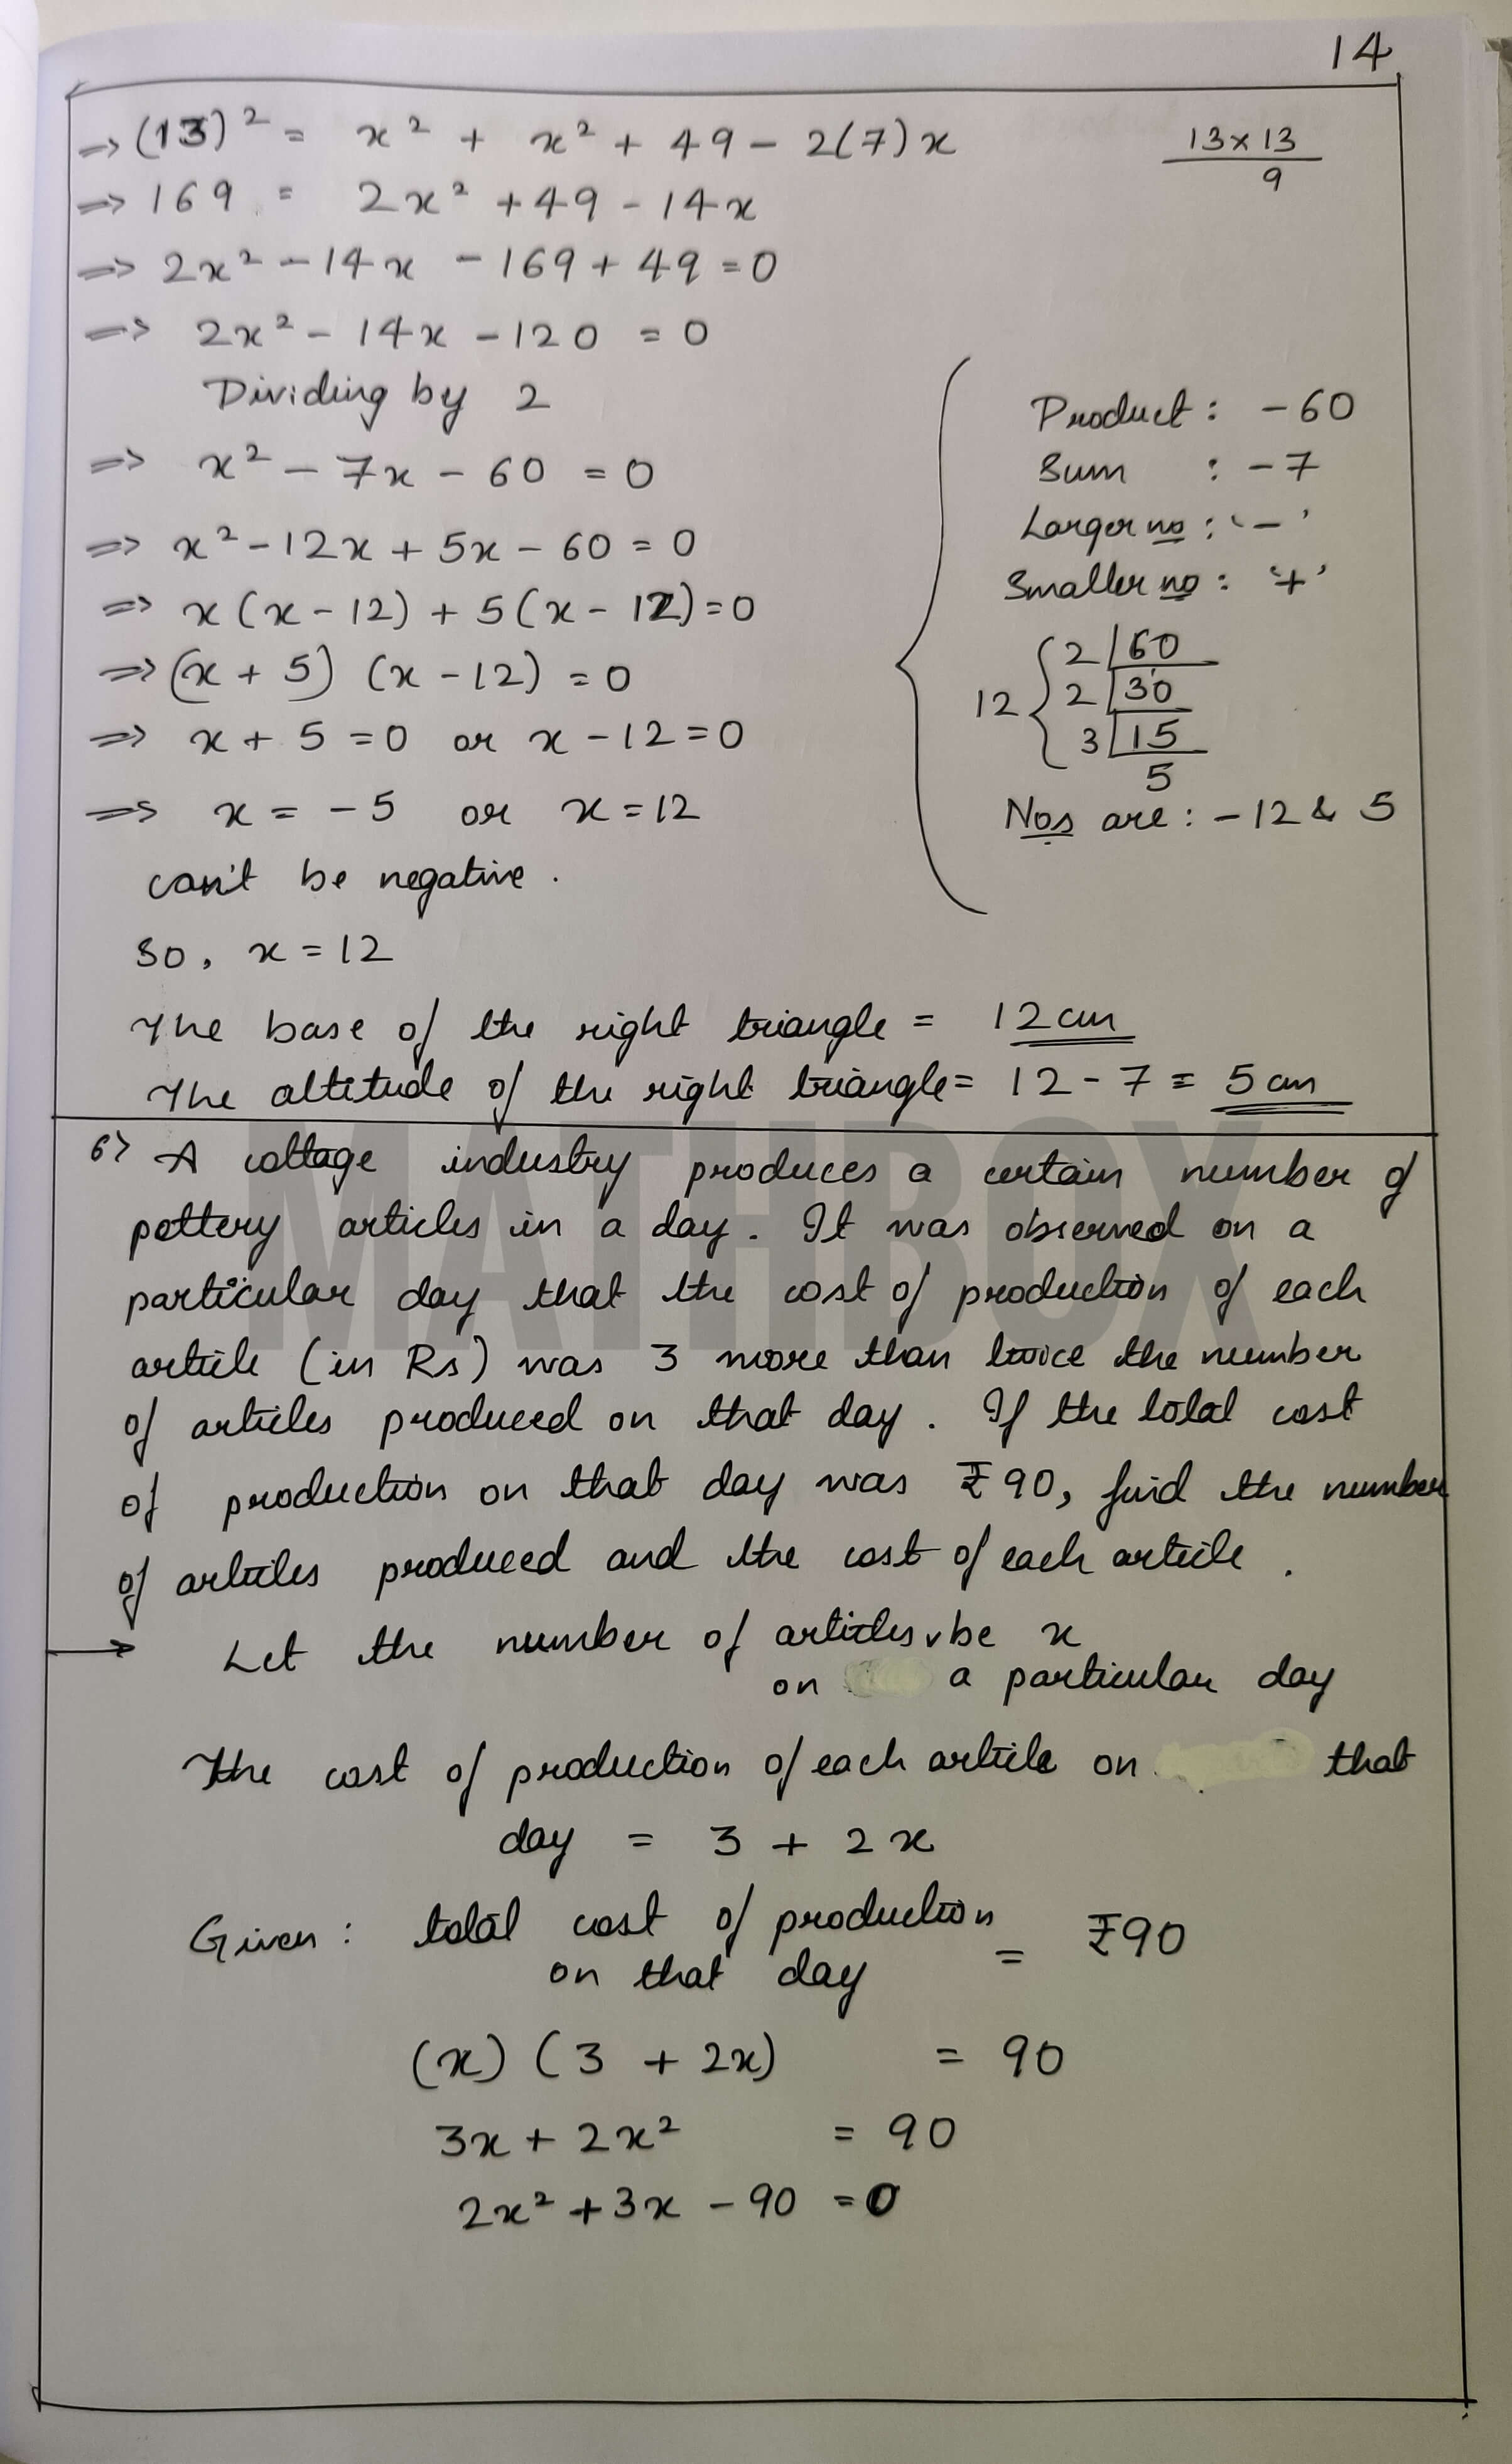 14
⇒ (13)² = x² + x² + 49 - 2(7)x
13 x 13
9
⇒ 169 = 2x² + 49 - 14x
⇒ 2x² - 14x - 169 + 49 = 0
⇒ 2x² - 14x - 120 = 0
Dividing by 2
⇒ x² - 7x - 60 = 0
⇒ x² - 12x + 5x - 60 = 0
⇒ x(x - 12) + 5(x - 12) = 0
⇒ (x + 5) (x - 12) = 0
⇒ x + 5 = 0 or x - 12 = 0
⇒ x = -5 or x = 12
can't be negative.
So, x = 12
Product : -60
Sum : -7
Larger no : '-'
Smaller no : '+'
2 | 60
12 { 2 | 30
3 | 15
5
Nos are : -12 & 5
The base of the right triangle = 12 cm
The altitude of the right triangle = 12 - 7 = 5 cm
MATHBOX
6> A cottage industry produces a certain number of
pottery articles in a day. It was observed on a
particular day that the cost of production of each
article (in Rs) was 3 more than twice the number
of articles produced on that day. If the total cost
of production on that day was ₹90, find the number
of articles produced and the cost of each article.
→ Let the number of articles be x
on a particular day
The cost of production of each article on that
day = 3 + 2x
Given : total cost of production
on that day = ₹90
(x) (3 + 2x) = 90
3x + 2x² = 90
2x² + 3x - 90 = 0